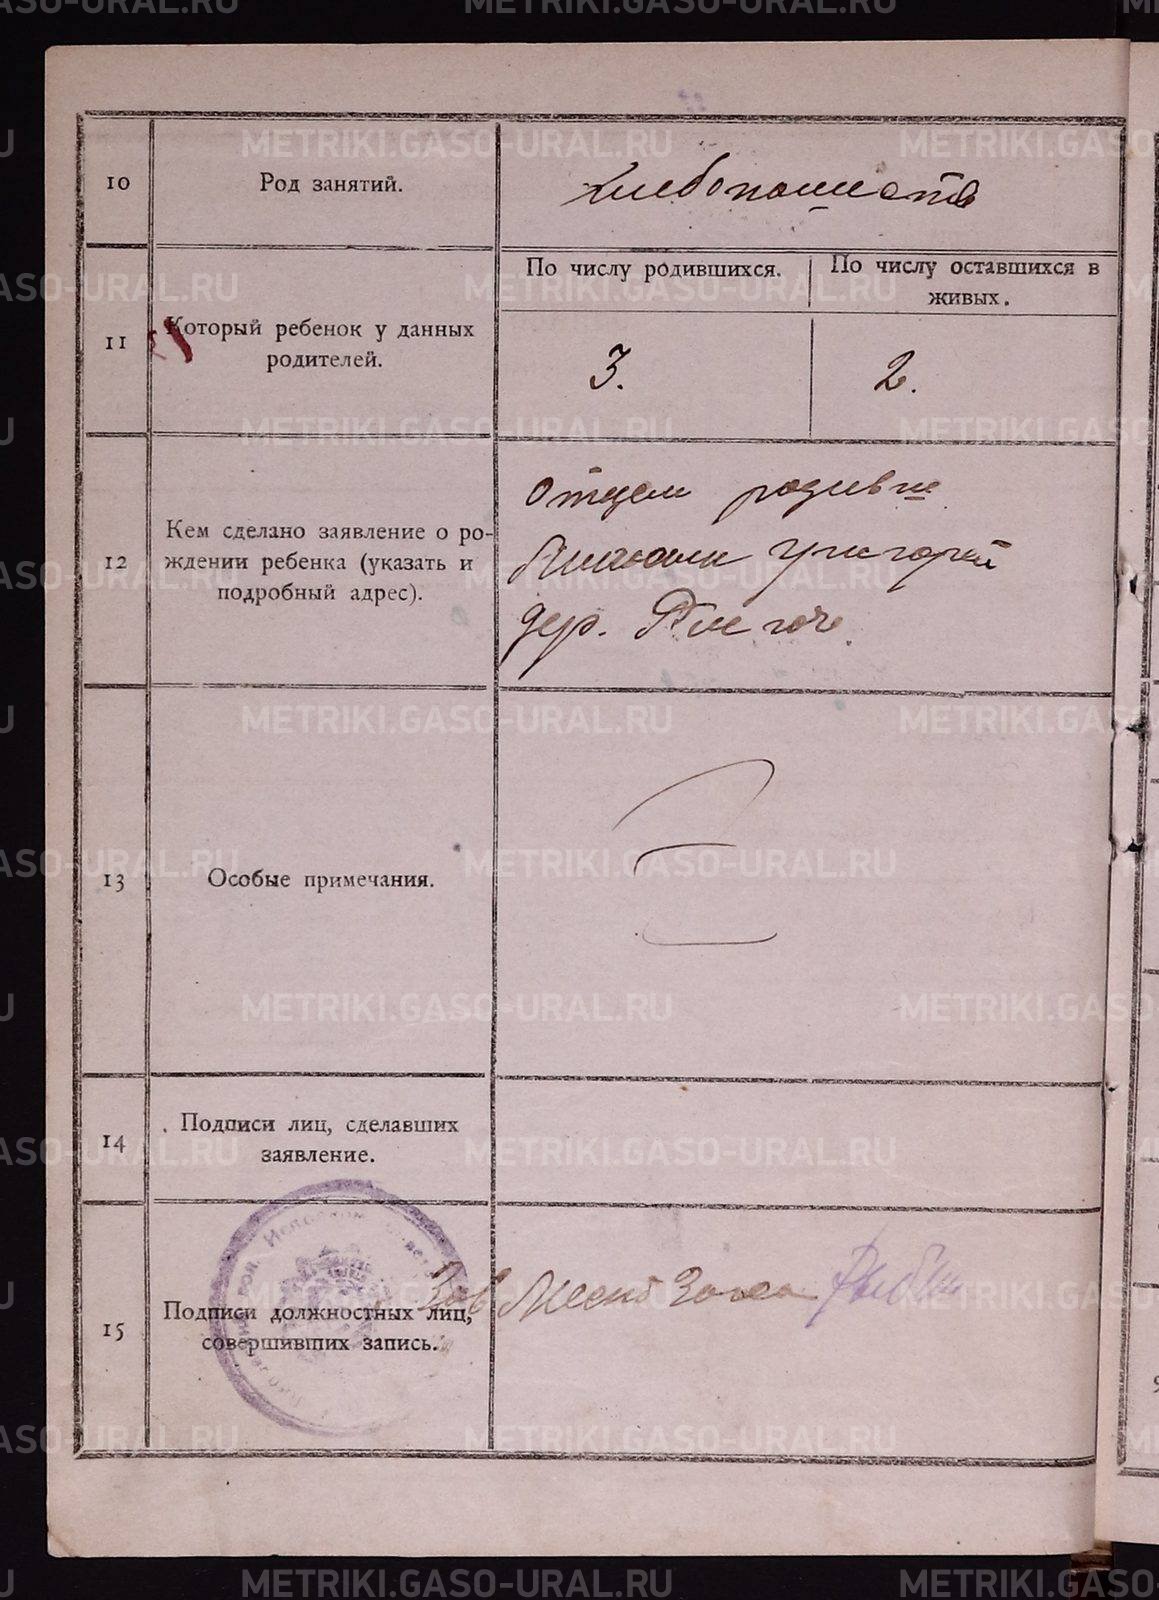 METRIKI.GASO-URAL.RU
10
Род занятий.
Хлебопашеств
11
Который ребенок у данных
родителей.
По числу родившихся.
По числу оставшихся в
живых.
3.
2.
12
Кем сделано заявление о ро-
ждении ребенка (указать и
подробный адрес).
Отцем
Григорий
дер.
13
Особые примечания.
14
Подписи лиц, сделавших
заявление.
15
Подписи должностных лиц,
совершивших запись.
Зав